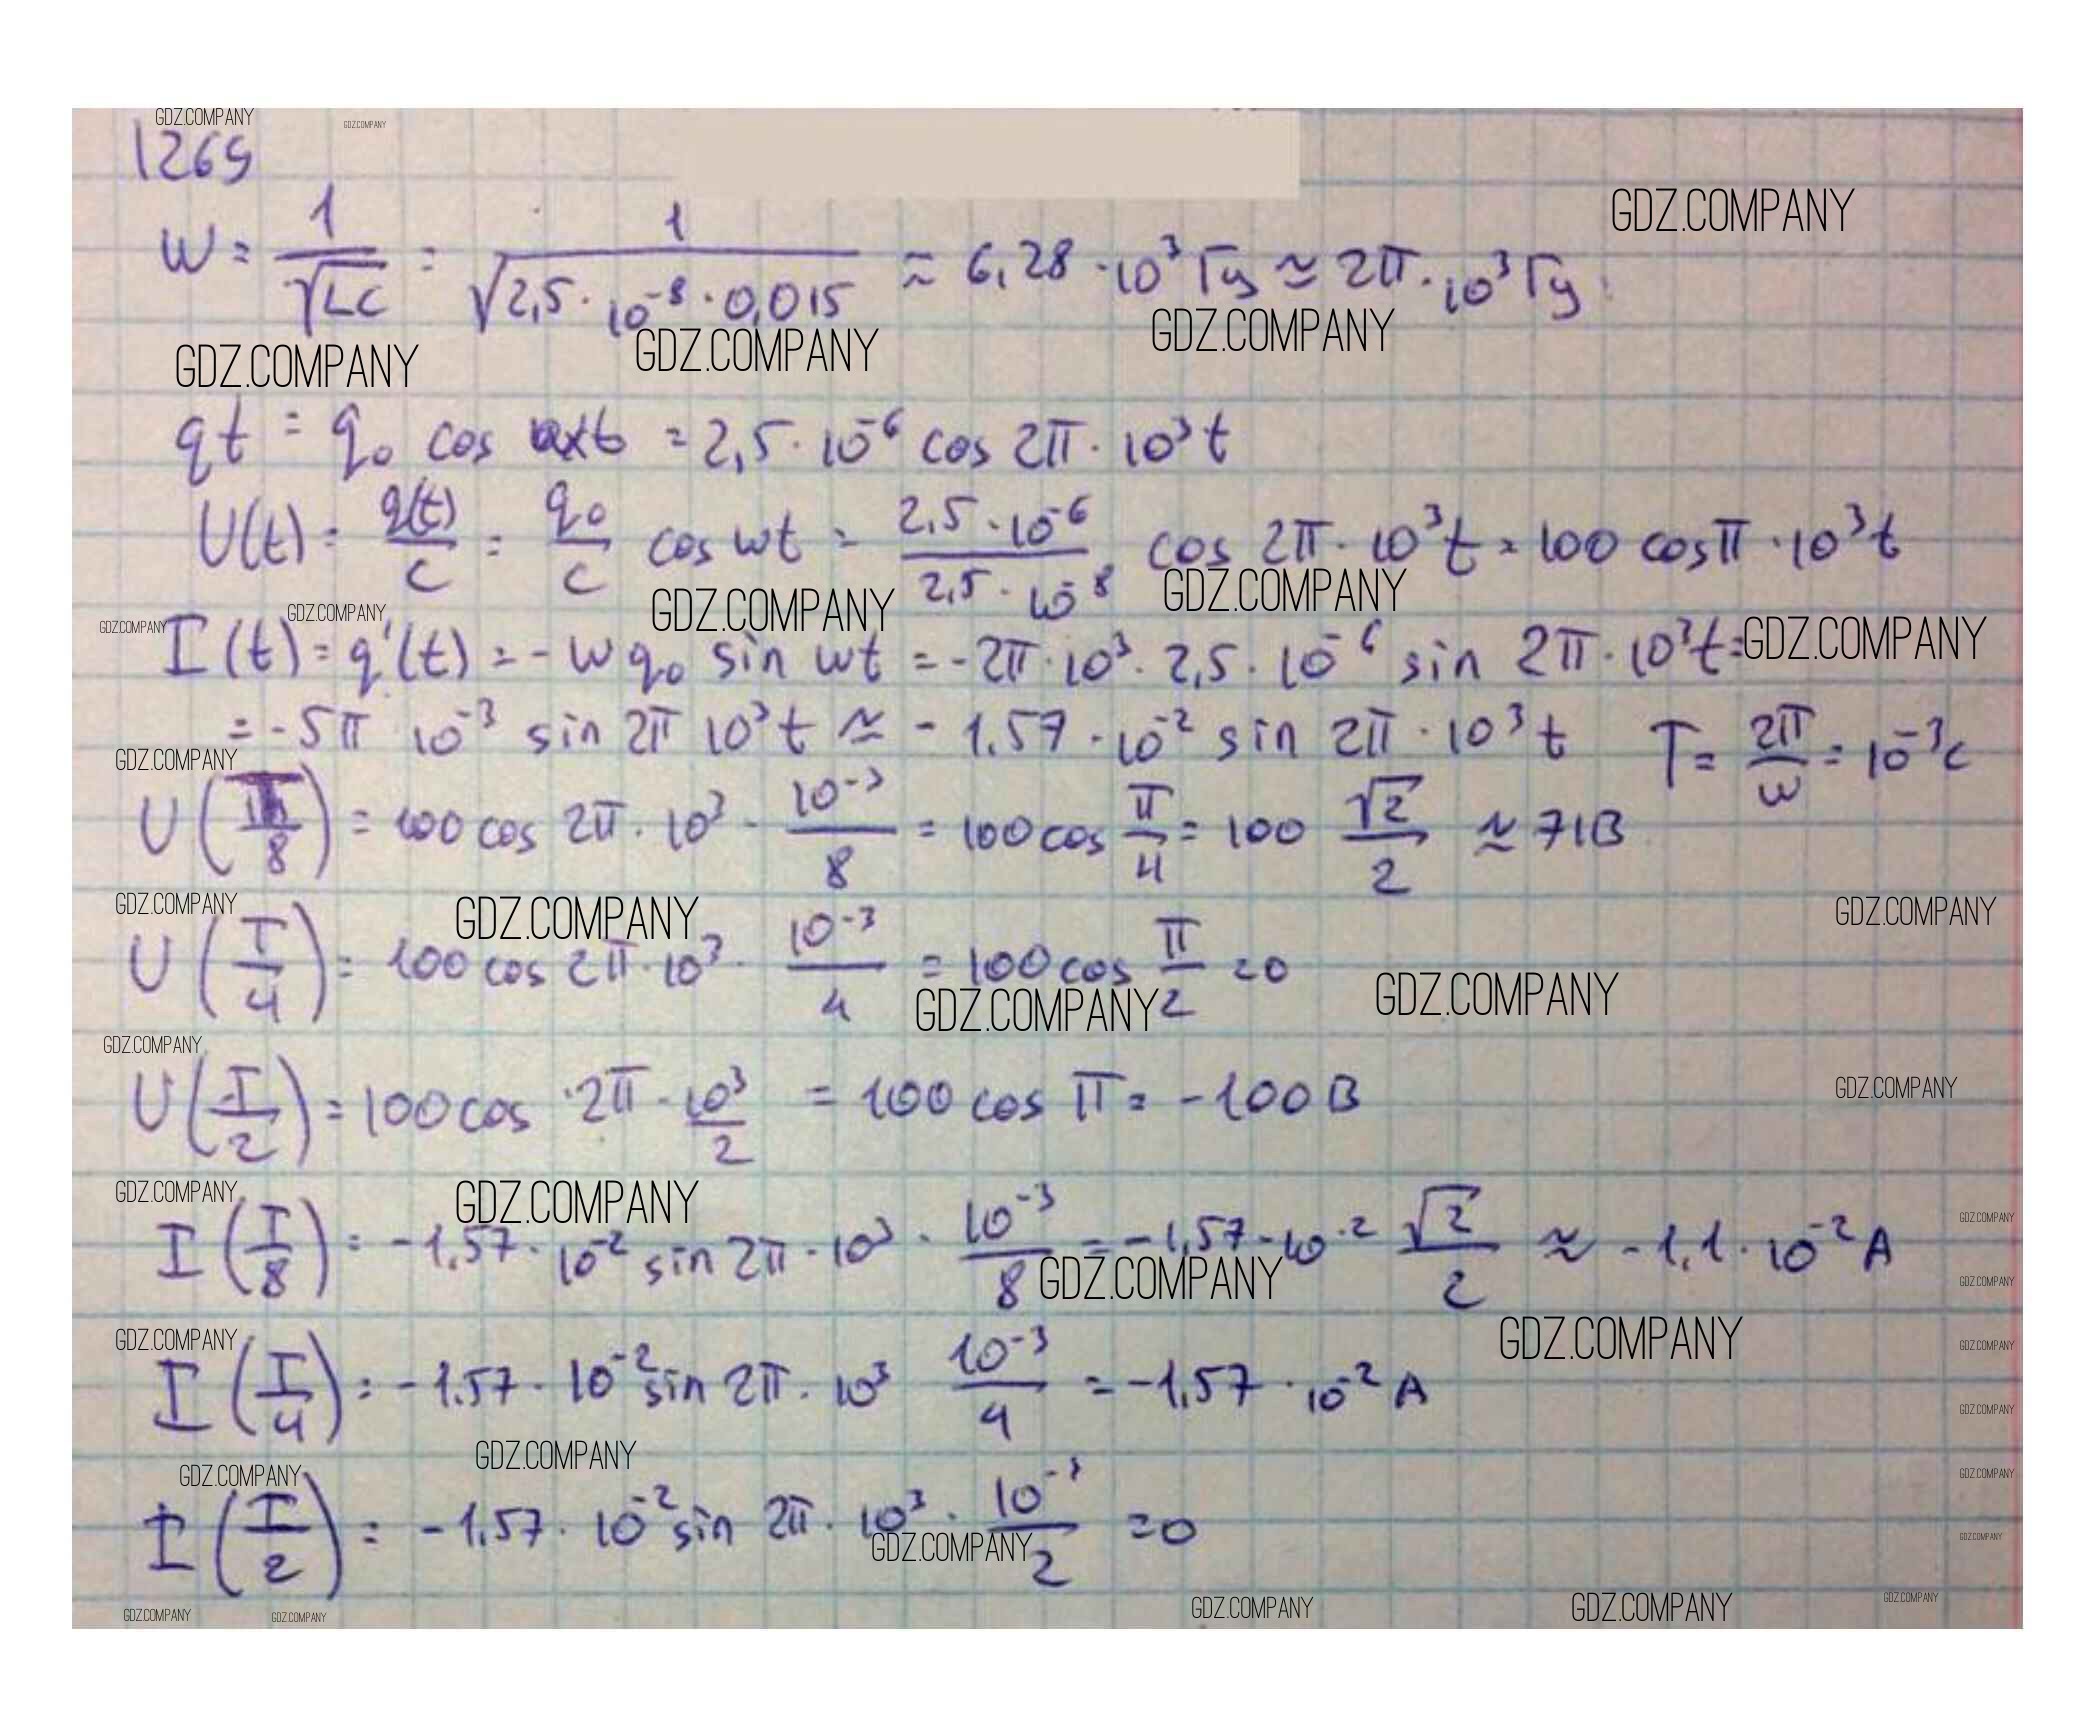 GDZ.COMPANY GDZ.COMPANY
1269
GDZ.COMPANY
W = 1/√LC = 1/√2,5 · 10⁻⁸ · 0,015 ≈ 6,28 · 10³ Гц ≈ 2π · 10³ Гц
GDZ.COMPANY GDZ.COMPANY GDZ.COMPANY
qt = q₀ cos = 2,5 · 10⁻⁶ cos 2π · 10³ t
U(t) = q(t)/C = q₀/C cos wt = 2,5 · 10⁻⁶/2,5 · 10⁻⁸ cos 2π · 10³ t = 100 cos π · 10³ t
GDZ.COMPANY GDZ.COMPANY GDZ.COMPANY GDZ.COMPANY
I (t) = q'(t) = - W q₀ sin wt = - 2π · 10³ · 2,5 · 10⁻⁶ sin 2π · 10³ t = GDZ.COMPANY
= - 5π 10⁻³ sin 2π 10³ t ≈ - 1.57 · 10⁻² sin 2π · 10³ t T = 2π/w = 10⁻³ с
GDZ.COMPANY
U (T/8) = 100 cos 2π · 10³ · 10⁻³/8 = 100 cos π/4 = 100 √2/2 ≈ 71 В
GDZ.COMPANY GDZ.COMPANY GDZ.COMPANY
U (T/4) = 100 cos 2π · 10³ · 10⁻³/4 = 100 cos π/2 = 0
GDZ.COMPANY GDZ.COMPANY
GDZ.COMPANY GDZ.COMPANY
U (T/2) = 100 cos · 2π · 10³/2 = 100 cos π = - 100 В
GDZ.COMPANY GDZ.COMPANY GDZ.COMPANY
I (T/8) = - 1,57 · 10⁻² sin 2π · 10³ · 10⁻³/8 = - 1,57 · 10⁻² √2/2 ≈ - 1,1 · 10⁻² А
GDZ.COMPANY GDZ.COMPANY
GDZ.COMPANY GDZ.COMPANY GDZ.COMPANY
I (T/4) = - 1.57 · 10⁻² sin 2π · 10³ 10⁻³/4 = - 1,57 · 10⁻² А
GDZ.COMPANY
GDZ.COMPANY GDZ.COMPANY GDZ.COMPANY
I (T/2) = - 1,57 · 10⁻² sin 2π · 10³ · 10⁻³/2 = 0
GDZ.COMPANY GDZ.COMPANY
GDZ.COMPANY GDZ.COMPANY GDZ.COMPANY GDZ.COMPANY GDZ.COMPANY